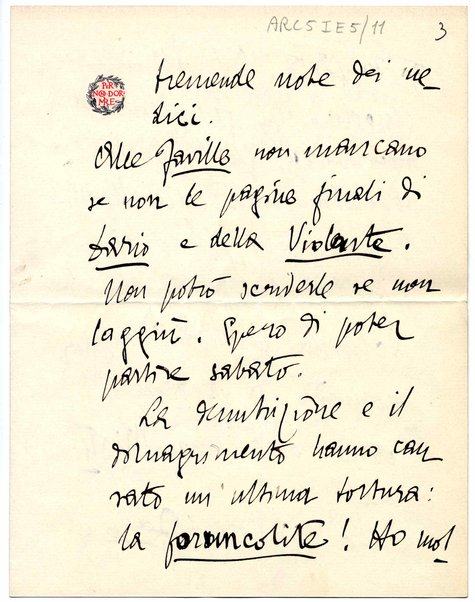 ARC5IE5/11
3
PER
NON DOR-
MIRE
tremende note dei me
dici.
Alle Faville non mancano
se non le pagine finali di
Dario e della Violante.
Non potrò scriverle se non
laggiù. Spero di poter
partire sabato.
La denutrizione e il
dimagrimento hanno cau
sato un'ultima tortura:
la foruncolite! Ho mol